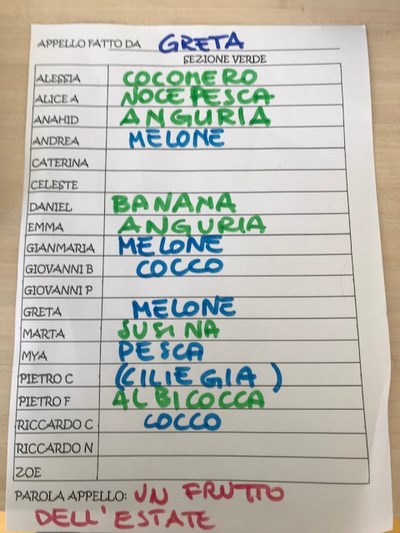 APPELLO FATTO DA GRETA
SEZIONE VERDE
ALESSIA COCOMERO
ALICE A NOCEPESCA
ANAHID ANGURIA
ANDREA MELONE
CATERINA
CELESTE
DANIEL BANANA
EMMA ANGURIA
GIANMARIA MELONE
GIOVANNI B COCCO
GIOVANNI P
GRETA MELONE
MARTA SUSINA
MYA PESCA
PIETRO C (CILIEGIA)
PIETRO F ALBICOCCA
RICCARDO C COCCO
RICCARDO N
ZOE
PAROLA APPELLO: UN FRUTTO
DELL'ESTATE